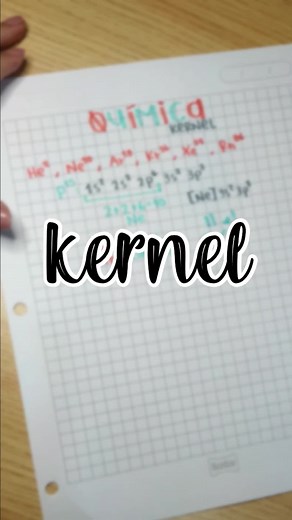 QUíMiCa
KERNEL
He², Ne¹⁰, Ar¹⁸, Kr³⁶, Xe⁵⁴, Rn⁸⁶
P¹⁵ 1s² 2s² 2p⁶ 3s² 3p³
[Ne] 3s² 3p³
2+2+6=10
Ne
kernel